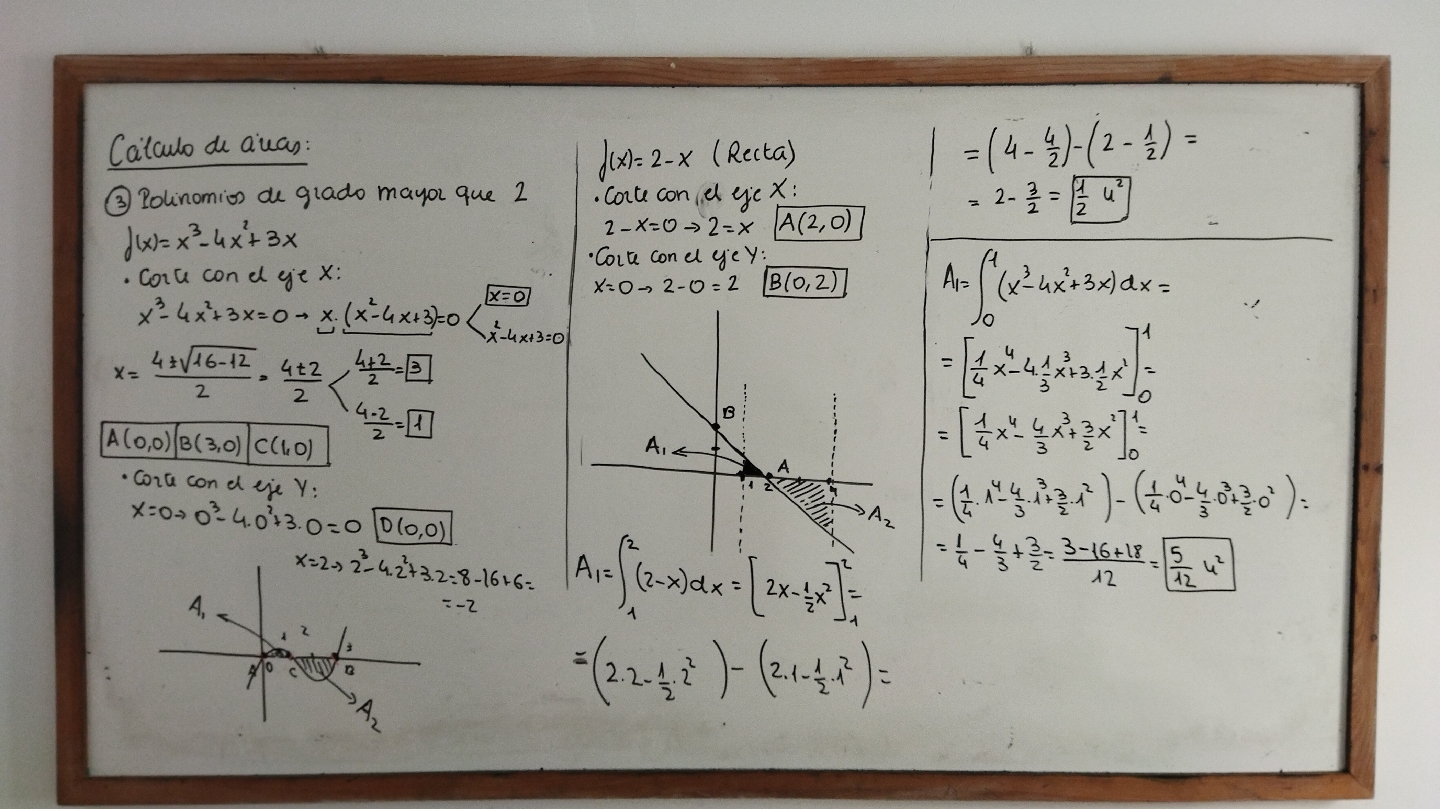 Cálculo de áreas:
③ Polinomios de grado mayor que 2
f(x)= x³-4x²+3x
• Corte con el eje X:
x³-4x²+3x=0 → x·(x²-4x+3)=0
x=0
x²-4x+3=0
x= (4±√(16-12))/2 = (4±2)/2
(4+2)/2 = 3
(4-2)/2 = 1
A(0,0) B(3,0) C(1,0)
• Corte con el eje Y:
x=0→ 0³-4.0²+3.0=0 D(0,0)
x=2→ 2³-4.2²+3.2=8-16+6=
=-2
A₁
1 2 3
A 0 C B
A₂
f(x)= 2-x (Recta)
• Corte con el eje X:
2-x=0→2=x A(2,0)
• Corte con el eje Y:
x=0→ 2-0=2 B(0,2)
B
A₁ A
1 2 4
A₂
A₁=∫₁²(2-x)dx = [2x-1/2x²]₁²=
=(2.2-1/2.2²)-(2.1-1/2.1²)=
=(4-4/2)-(2-1/2)=
= 2-3/2= 1/2 u²
A₁=∫₀¹(x³-4x²+3x)dx=
=[1/4x⁴-4.1/3x³+3.1/2x²]₀¹=
=[1/4x⁴-4/3x³+3/2x²]₀¹=
=(1/4.1⁴-4/3.1³+3/2.1²)-(1/4.0⁴-4/3.0³+3/2.0²)=
=1/4-4/3+3/2= (3-16+18)/12= 5/12 u²